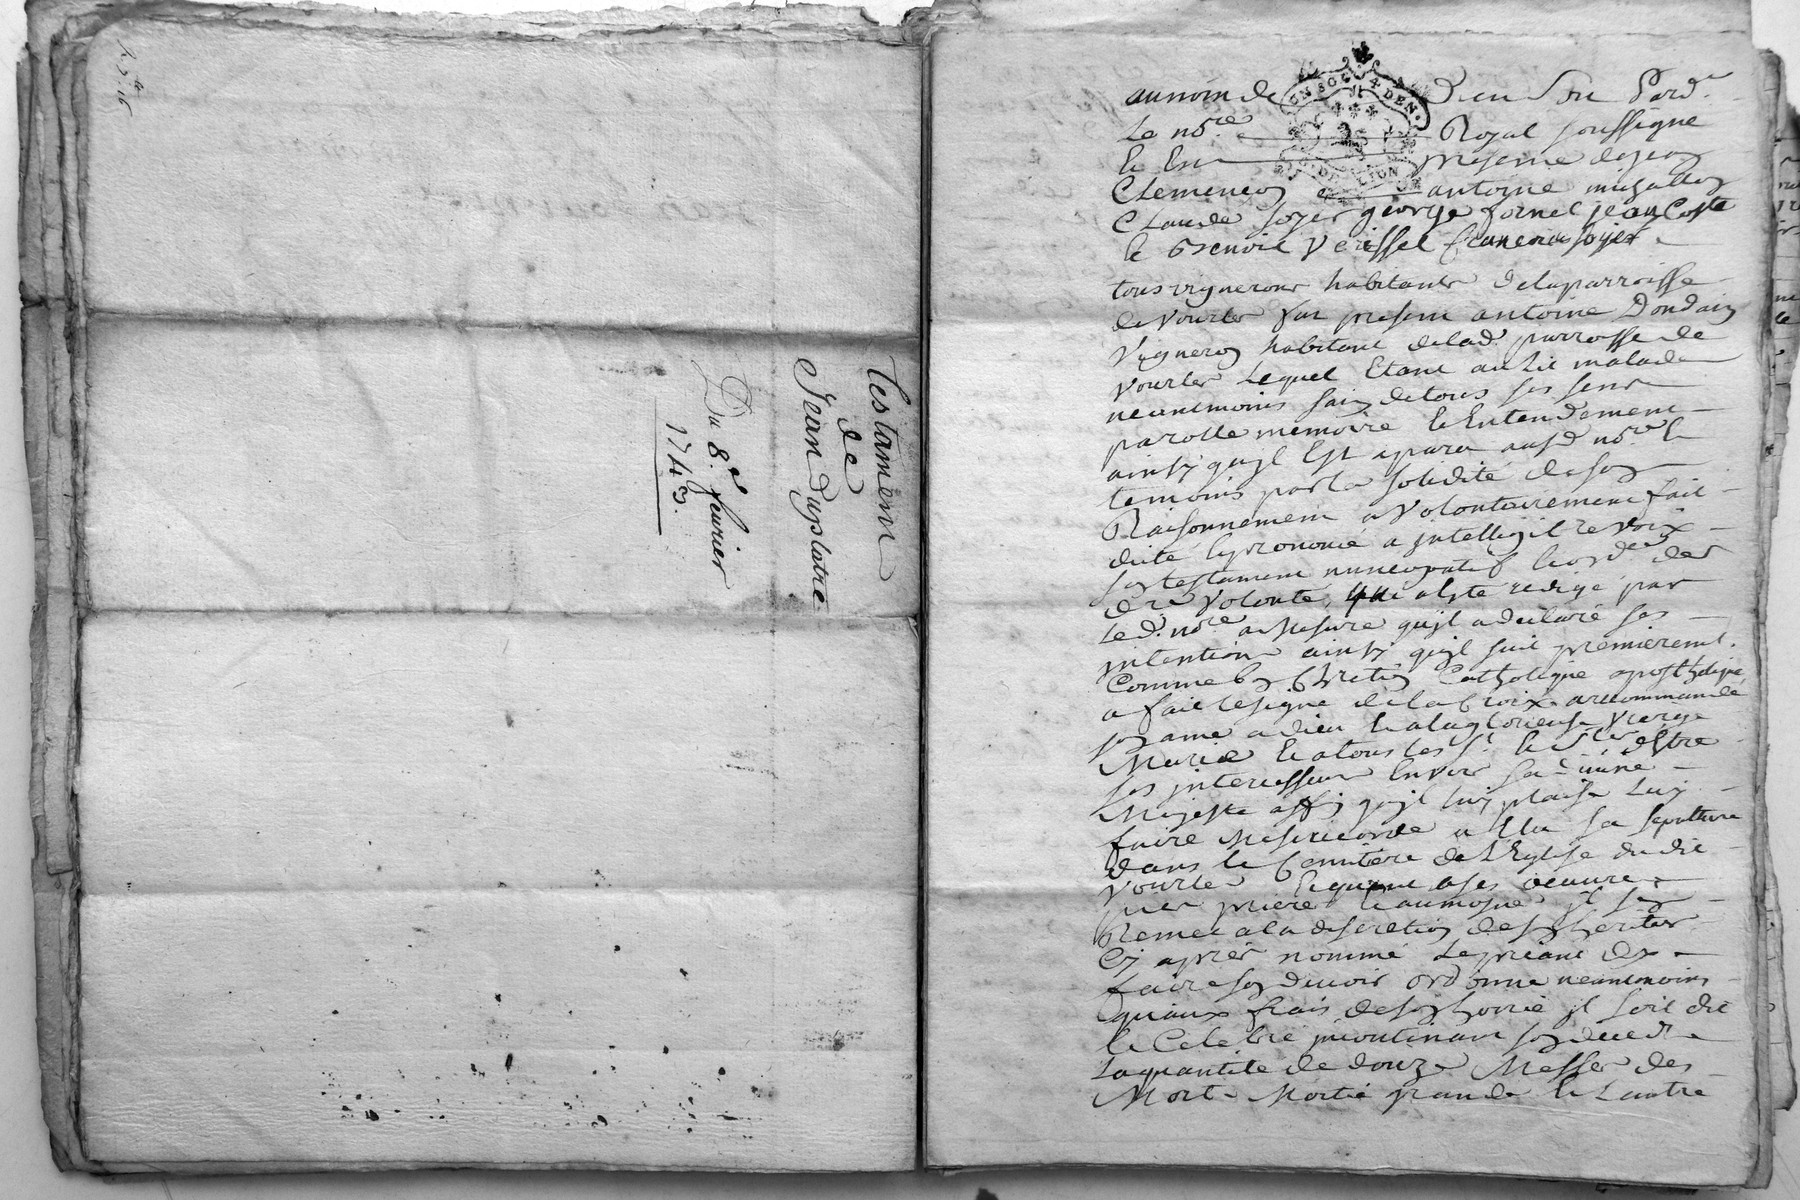 Testament
de
Jean Duplatre
Du 8.e feurier
1743.
au nom de Dieu Soit Pard.
Le no.re Royal soussigne
Et En presence de jean
Clemencoz antoine
Claude Soyer george fornel jean Coste
Et Benoit Verissel francois Soyer
tous vignerons habitants de la parroisse
de Vourles fut present antoine Dondaiz
Vigneroz habitant de lad. parroisse de
Vourles Lequel Etant au Lit malade
neantmoins saiz de tous ses sens
parolle memoire Et Entendement
ainsy quil Est aparu aud. no.re Et
temoins par la solidité de soz
Raisonnement a volontairement fait
dicté Et prononcé a intelligible voix
soz testament nuncupatif Et ord. de
d.re volonté, qui a Este redigé par
Led. no.re a Mesure quil a declaré ses
intentions ainsy quil suit premierem.t
Comme boz Chretiez Catholique apostholique
a fait le signe de la Croix a recommandé
soz ame a dieu Et a la glorieuse Vierge
Marie Et a tous les S.t Et S.tes d'Estre
ses intercesseurs Envers sa divine
Majesté affiz quil luy plaise Luy
faire Misericorde a Elu sa sepulture
dans le Cemitiere de L'Eglise dudit
Vourles Et quant a ses oeuvres
pies priere Et aumosne il sez
Remet a la discretioz de soz heritier
Cy apres nommé Le priant dez
faire soz devoir ordonne neantmoins
quaux frais de soz horrie il soit dit
Et Celebré incontinant soz deced
La quantité de douze Messes des
Mort Moitié grande Et Lautre